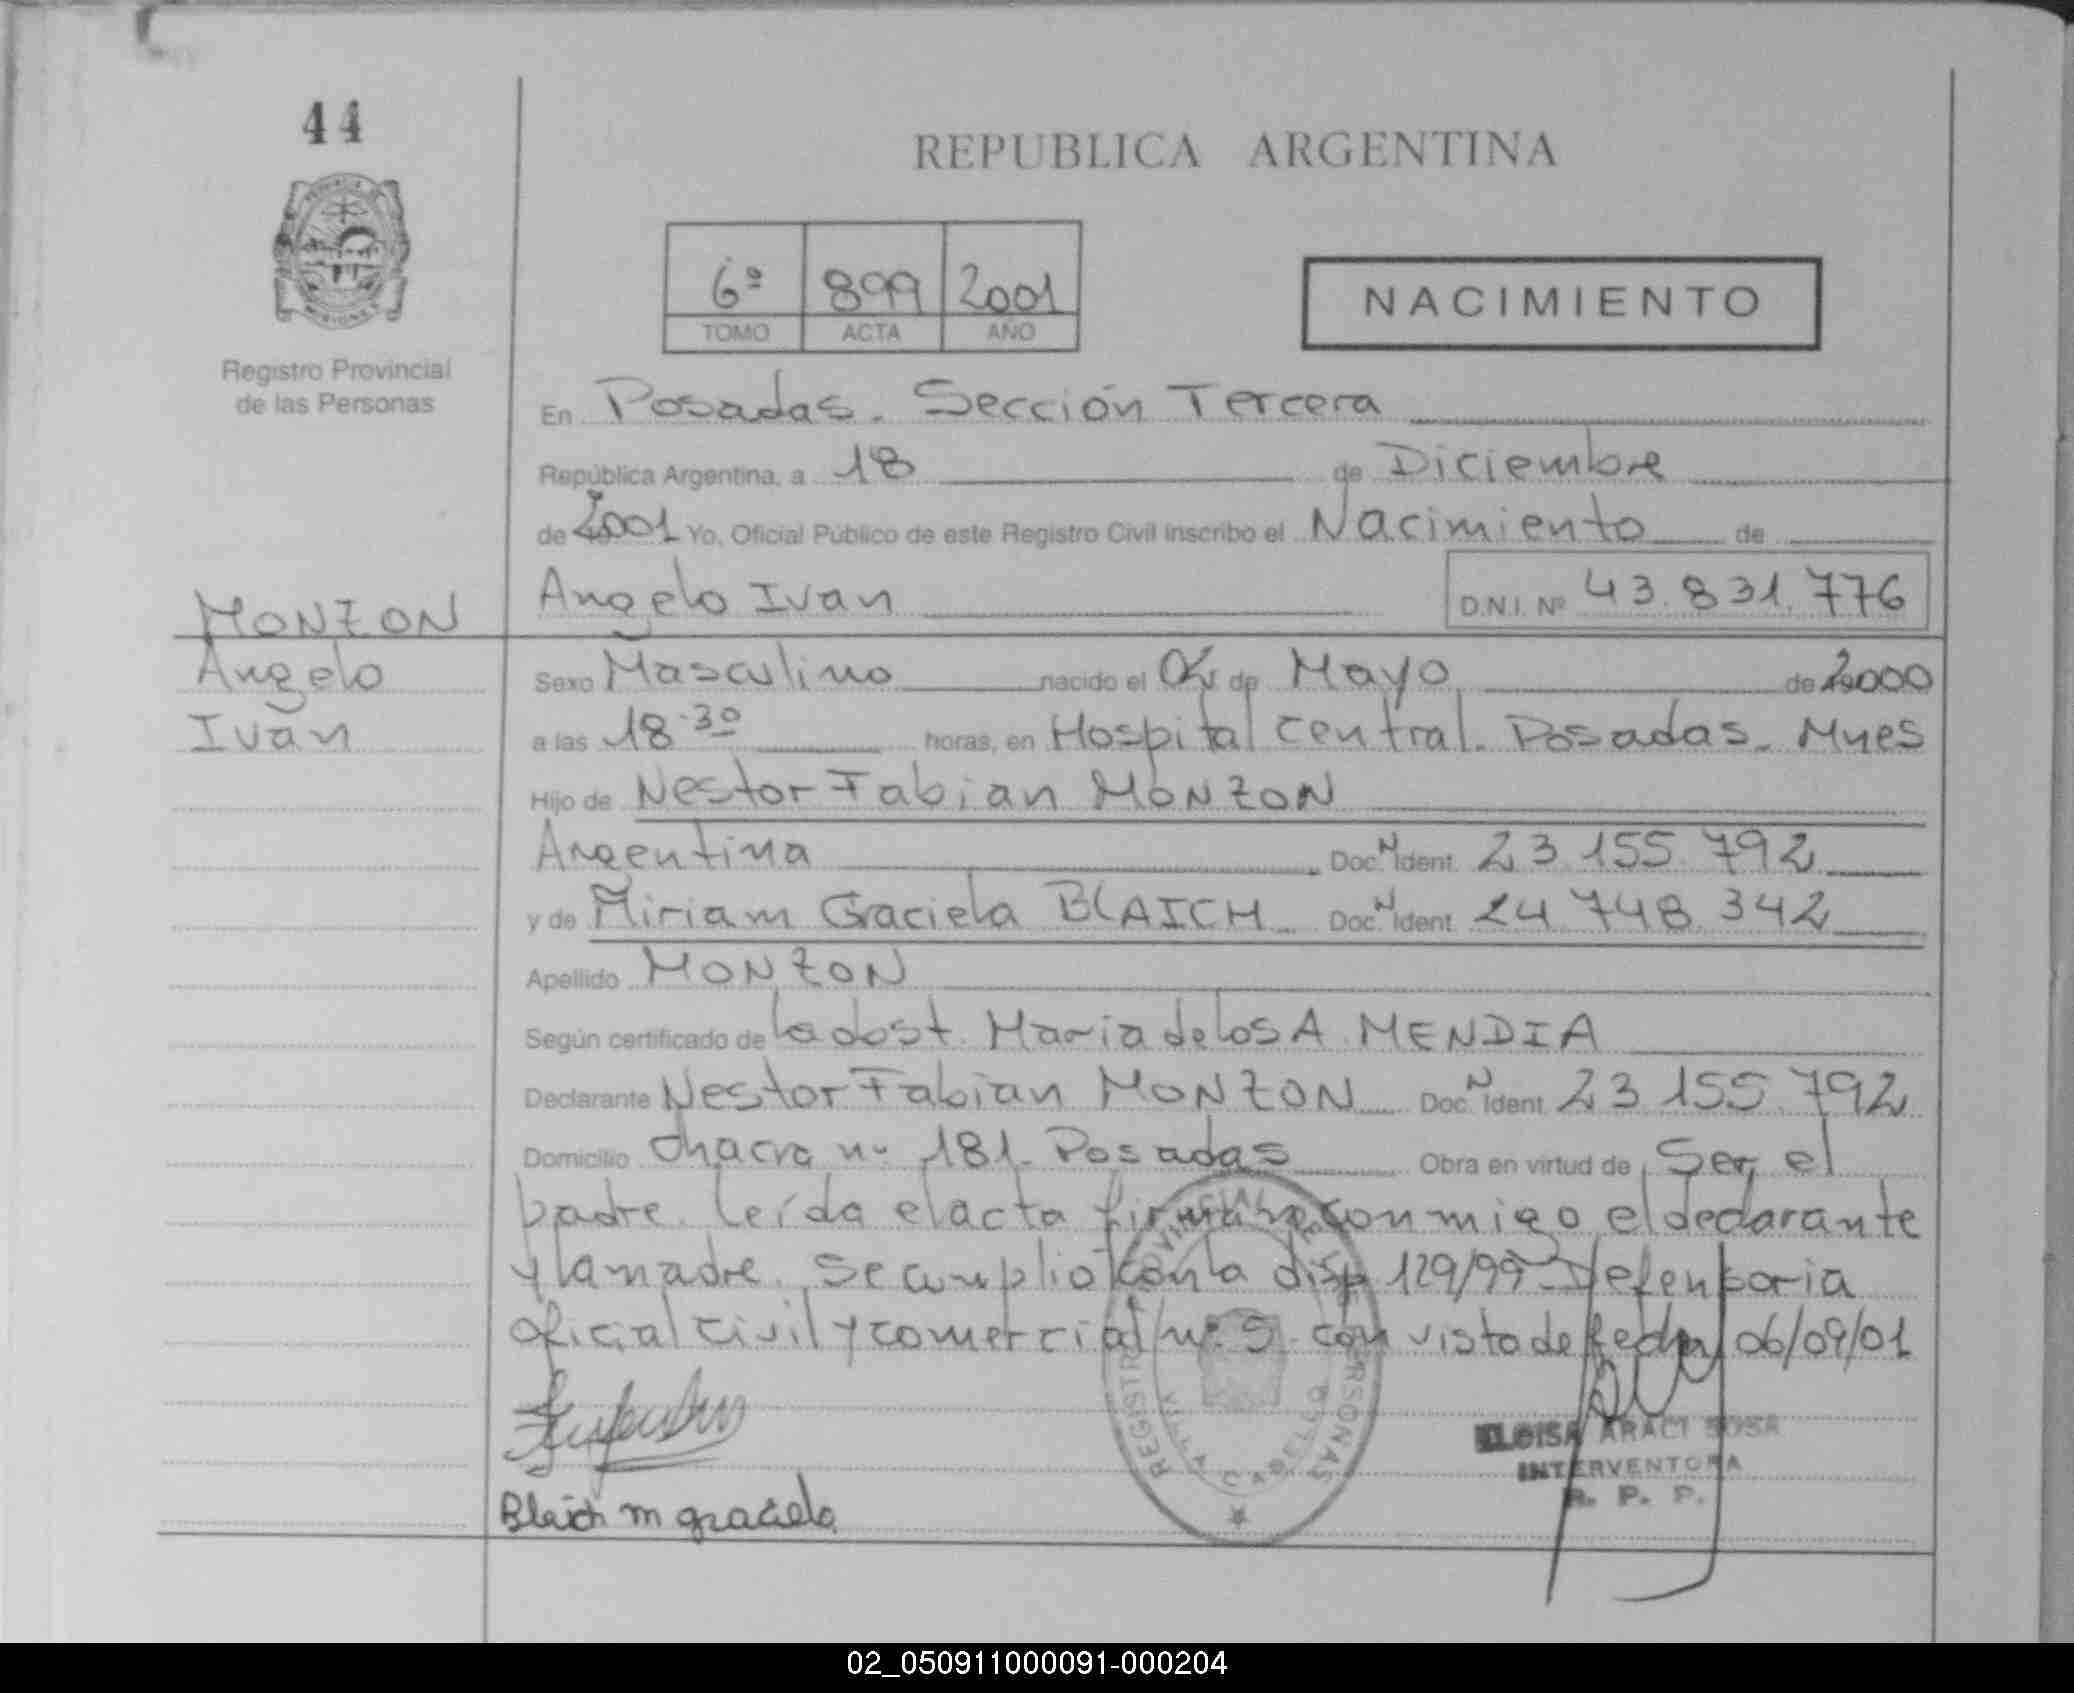 44
REPUBLICA ARGENTINA
6º 899 2001
TOMO ACTA AÑO
NACIMIENTO
Registro Provincial
de las Personas
En Posadas. Sección Tercera
República Argentina, a 18 de Diciembre
de 2001 Yo, Oficial Público de este Registro Civil inscribo el Nacimiento de
MONZON
Angelo Ivan D.N.I. Nº 43.831.776
Angelo
Sexo Masculino nacido el 02 de Mayo de 2000
Ivan
a las 18.30 horas, en Hospital Central. Posadas. Mnes
Hijo de Nestor Fabian MONZON
Argentina Doc. N Ident. 23.155.792
y de Miriam Graciela BLAICH Doc. N Ident. 24.748.342
Apellido MONZON
Según certificado de la obst. Maria de los A. MENDIA
Declarante Nestor Fabian MONZON Doc. N Ident. 23.155.792
Domicilio Chacra nº 181. Posadas Obra en virtud de Ser el
padre. Leída el acta firman conmigo el declarante
y la madre. Se cumplio con la disp 129/99 Defensoria
oficial civil y comercial nº 5. con vista de fecha 06/09/01
REGISTRO PROVINCIAL DE LAS PERSONAS
CABELLO
ELOISA ARACI SOSA
INTERVENTORA
R. P. P.
Blaich m graciela
02_050911000091-000204